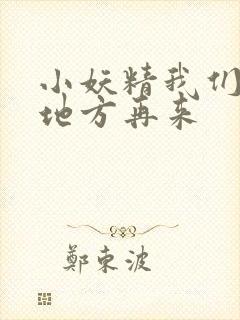 小妖精我们
地方再来
鄭東波